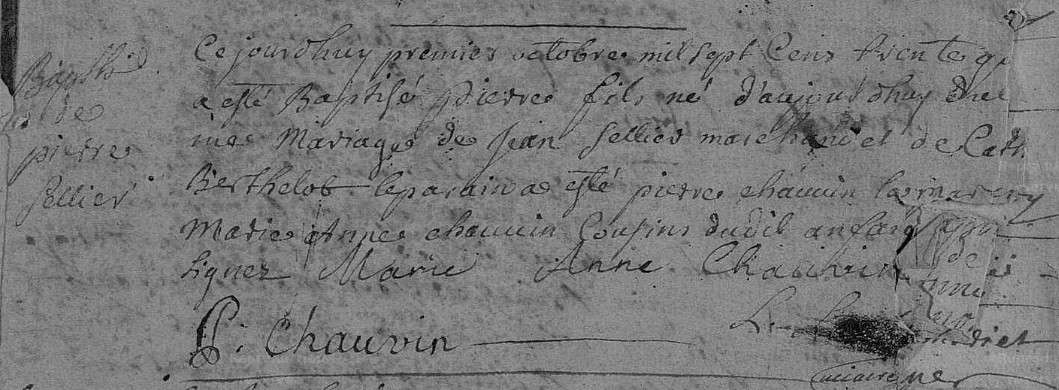 Bapt
de
pierre
Sellier
Cejourdhuy premier octobre mil sept Cens trente
a esté Baptisé pierre fils né d'aujourdhuy du
me Mariage de Jean Sellier marchand et de Cath
Berthelot le parain a esté pierre chauvin la mareny
Marie Anne chauvin Cousins dudit anfan
Signez Marie Anne Chauvin
de
P. Chauvin